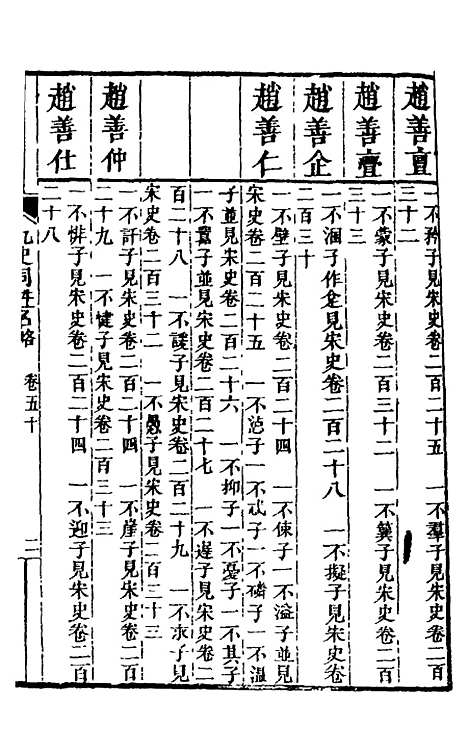 趙善亶
一不矜子見宋史卷二百二十五　一不羣子見宋史卷二百
三十二
趙善𧄍
一不蒙子見宋史卷二百三十二　一不簨子見宋史卷二百
三十三
趙善企
一不涸子作㐲見宋史卷二百二十八　一不擬子見宋史卷
二百三十
趙善仁
一不壁子見宋史卷二百二十四　一不倲子一不溢子並見
宋史卷二百二十五　一不㳒子一不忒子一不磷子一不溫
子並見宋史卷二百二十六　一不抑子一不憂子一不其子
一不驀子並見宋史卷二百二十七　一不遲子見宋史卷二
百二十八　一不諜子見宋史卷二百二十九　一不汞子見
宋史卷二百三十二　一不愚子見宋史卷二百三十三
趙善仲
一不訐子見宋史卷二百二十四　一不崖子見宋史卷二百
二十九　一不犍子見宋史卷二百三十三
趙善仕
一不倂子見宋史卷二百二十四　一不迎子見宋史卷二百
二十八
九史同姓名略　卷五十　三